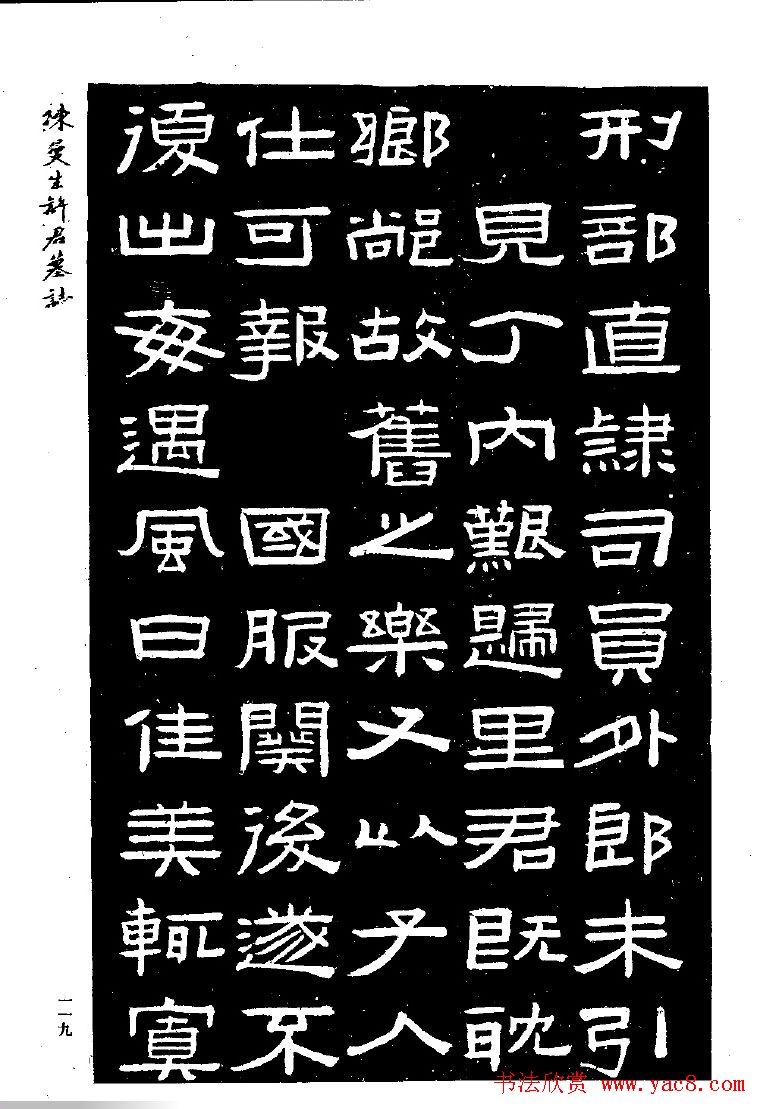 刑部直隸司員外郎未引
見丁內艱歸里君既耽
鄉黨故舊之樂又以子入
仕可報 國服闋後遂不
復出每遇風日佳美輒賓
陳曼生許君墓誌
一一九
书法欣赏 www.yac8.com